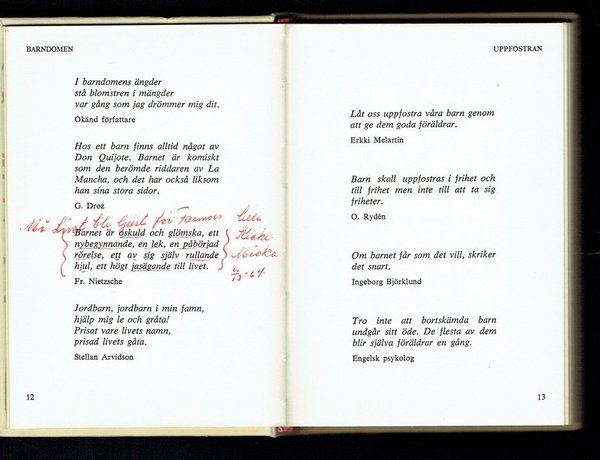 BARNDOMEN
I barndomens ängder
stå blomstren i mängder
var gång som jag drömmer mig dit.
Okänd författare
Hos ett barn finns alltid något av
Don Quijote. Barnet är komiskt
som den berömde riddaren av La
Mancha, och det har också liksom
han sina stora sidor.
G. Droz
Må Livet bli ljust för Farmors lilla
Barnet är oskuld och glömska, ett
nybegynnande, en lek, en påbörjad
rörelse, ett av sig själv rullande
hjul, ett högt jasägande till livet.
Fr. Nietzsche
Jordbarn, jordbarn i min famn,
hjälp mig le och gråta!
Prisat vare livets namn,
prisad livets gåta.
Stellan Arvidson
12
UPPFOSTRAN
Låt oss uppfostra våra barn genom
att ge dem goda föräldrar.
Erkki Melartin
Barn skall uppfostras i frihet och
till frihet men inte till att ta sig
friheter.
O. Rydén
Om barnet får som det vill, skriker
det snart.
Ingeborg Björklund
Tro inte att bortskämda barn
undgår sitt öde. De flesta av dem
blir själva föräldrar en gång.
Engelsk psykolog
13